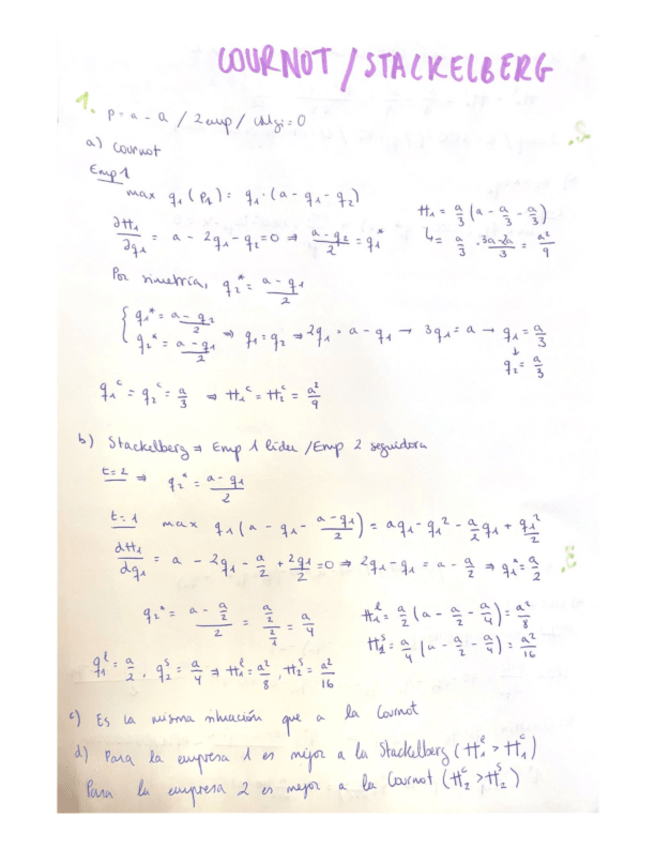 COURNOT / STACKELBERG
1. p = a - Q / 2 emp / CMgi = 0
a) Cournot
Emp 1
max q₁(p₁) = q₁·(a - q₁ - q₂)
∂π₁/∂q₁ = a - 2q₁ - q₂ = 0 ⇒ (a - q₂)/2 = q₁*
π₁ = a/3 (a - a/3 - a/3)
↳ = a/3 · (3a - 2a)/3 = a²/9
Por simetría, q₂* = (a - q₁)/2
{ q₁* = (a - q₂)/2
{ q₂* = (a - q₁)/2 ⇒ q₁ = q₂ ⇒ 2q₁ = a - q₁ → 3q₁ = a → q₁ = a/3
↓
q₂ = a/3
q₁ᶜ = q₂ᶜ = a/3 ⇒ π₁ᶜ = π₂ᶜ = a²/9
b) Stackelberg ⇒ Emp 1 líder / Emp 2 seguidora
t=2 ⇒ q₂* = (a - q₁)/2
t=1 max q₁(a - q₁ - (a - q₁)/2) = aq₁ - q₁² - a/2 q₁ + q₁²/2
dπ₁/dq₁ = a - 2q₁ - a/2 + 2q₁/2 = 0 ⇒ 2q₁ - q₁ = a - a/2 ⇒ q₁* = a/2
q₂* = (a - a/2)/2 = (a/2)/(2/1) = a/4
π₁ˡ = a/2 (a - a/2 - a/4) = a²/8
π₂ˢ = a/4 (a - a/2 - a/4) = a²/16
q₁ˡ = a/2, q₂ˢ = a/4 ⇒ π₁ˡ = a²/8, π₂ˢ = a²/16
c) Es la misma situación que a la Cournot
d) Para la empresa 1 es mejor a la Stackelberg (π₁ˡ > π₁ᶜ)
Para la empresa 2 es mejor a la Cournot (π₂ᶜ > π₂ˢ)